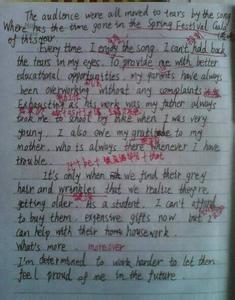 The audience were all moved to tears by the song
Where has the time gone in the Spring Festival Gala
of this year
Every time I enjoy the song. I can't hold back
the tears in my eyes. To provide me with better
educational opportunities, my parents have always
been overworking without any complaints
Exhausting as his work was my father always
storied to me when I was very
young. I also owe my gratitude to my
mother. who is always there whenever I have
trouble.
It + be + + that
It's only when we find their grey
hair and wrinkles that we realize they're
getting older. As a student. I can't afford
to buy them expensive gifts now but I
can help with their housework.
what's more. moreover
I'm determined to work harder to let them
feel proud of me in the future.